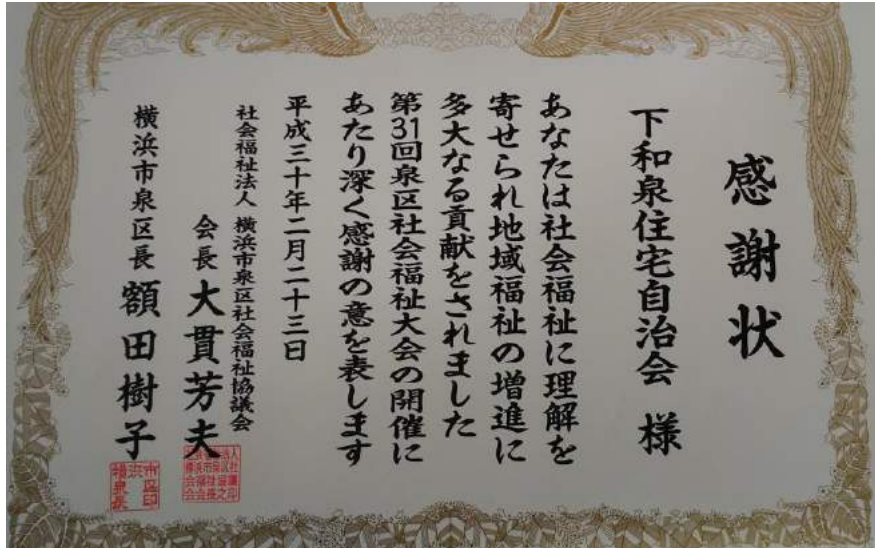 感謝状
下和泉住宅自治会 様
あなたは社会福祉に理解を
寄せられ地域福祉の増進に
多大なる貢献をされました
第31回泉区社会福祉大会の開催に
あたり深く感謝の意を表します
平成三十年二月二十三日
社会福祉法人 横浜市泉区社会福祉協議会
会長 大貫芳夫
横浜市泉区長 額田樹子